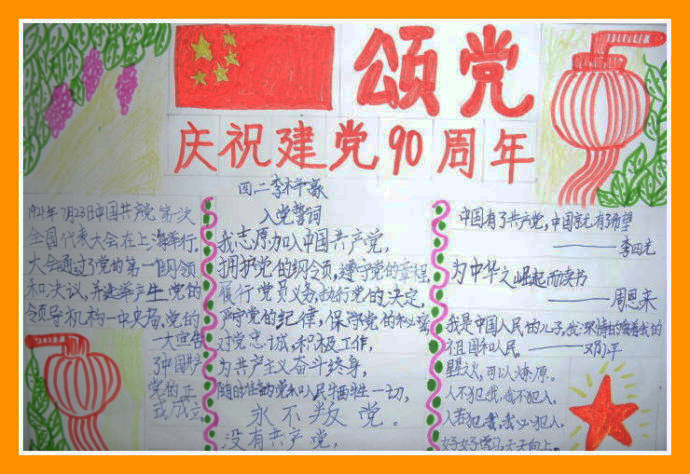 颂党
庆祝建党90周年
四二李梓豪
1921年7月23日中国共产党第一次
全国代表大会在上海举行.
大会通过了党的第一个纲领
和决议,并选举产生党的
领导机构一中央局,党的
一大宣告
了中国共
党的正
式成立
入党誓词
我志愿加入中国共产党,
拥护党的纲领,遵守党的章程,
履行党员义务,执行党的决定,
严守党的纪律,保守党的秘密
对党忠诚,积极工作,
为共产主义奋斗终身,
随时准备为党和人民牺牲一切,
永不叛党。
没有共产党,
中国有了共产党,中国就尤有了希望
——李四光
为中华之崛起而读书
——周恩来
我是中国人民的儿子,我深情的爱着我的
祖国和人民。——邓小平
星星之火,可以燎原。
人不犯我,我不犯人,
人若犯我,我必犯人.
好好学习,天天向上.